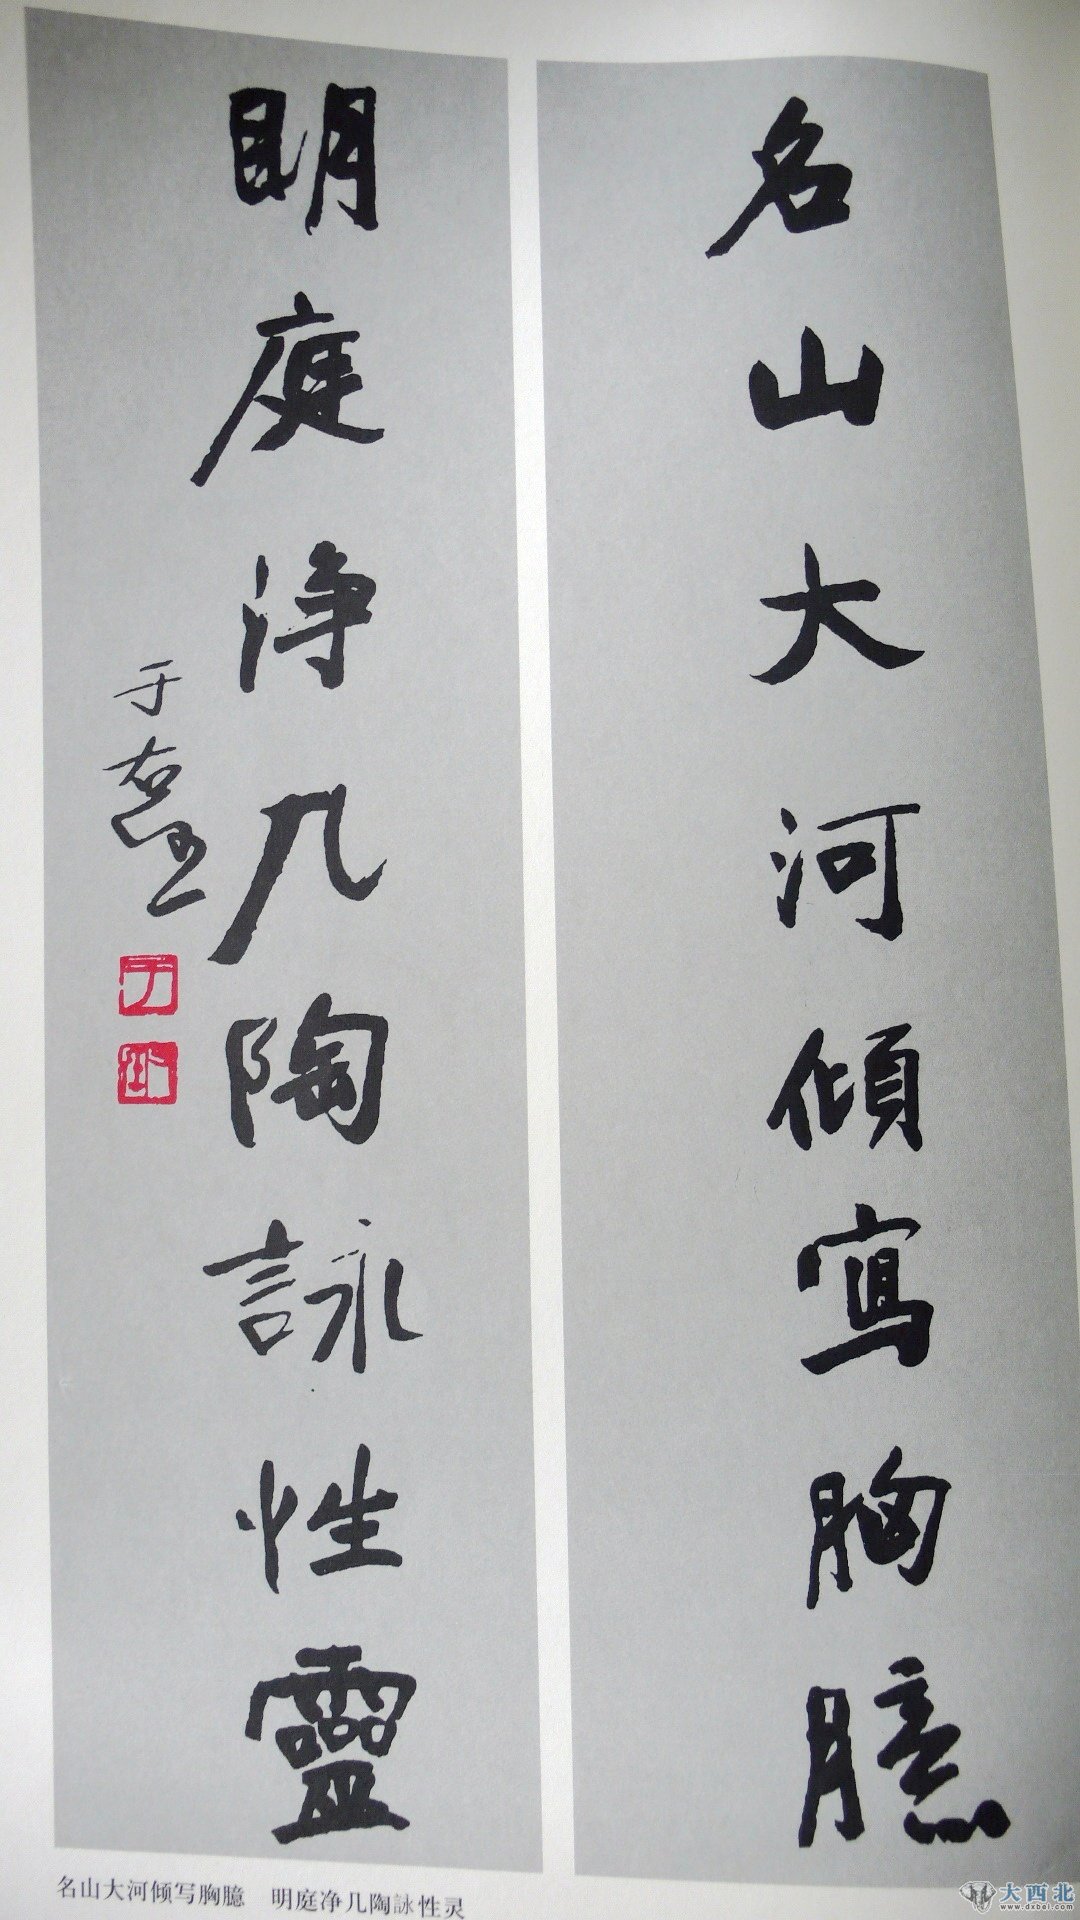 名山大河傾寫胸臆
明庭淨几陶詠性靈
于右任
名山大河倾写胸臆 明庭净几陶詠性灵
大西北
www.dxbei.com